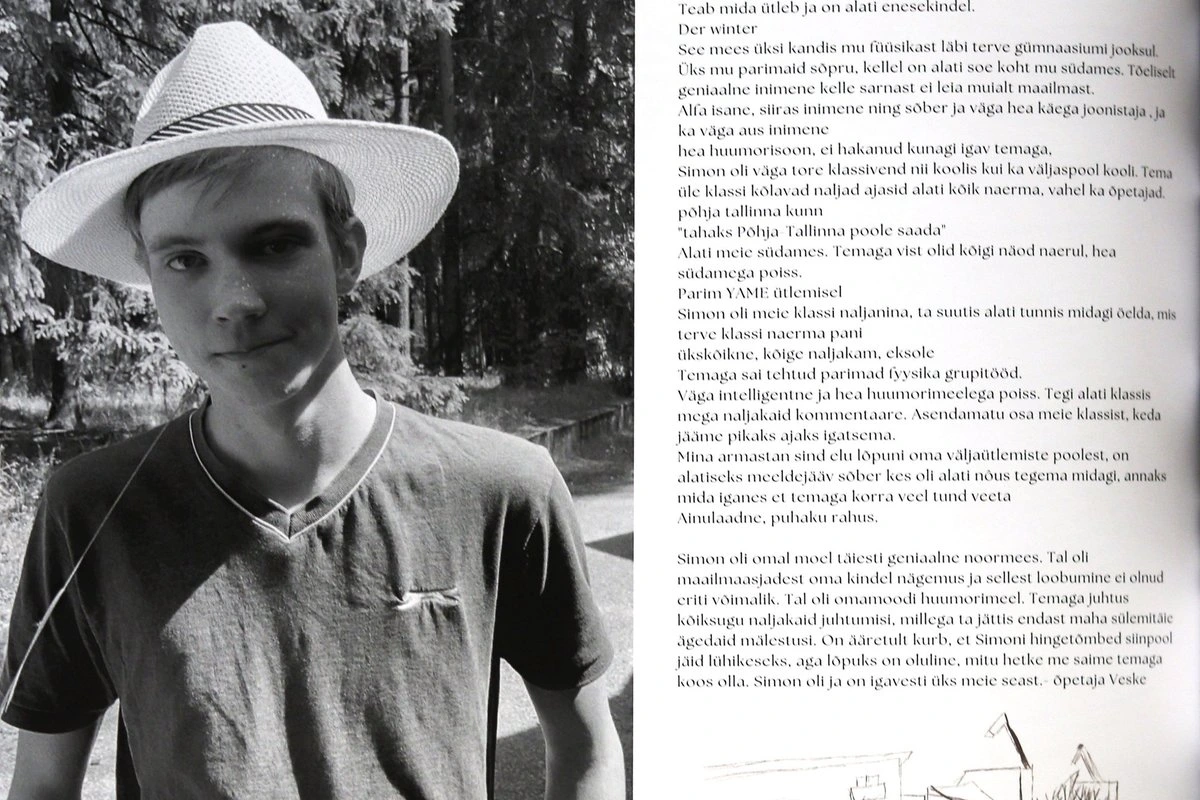 Teab mida ütleb ja on alati enesekindel.
Der winter
See mees üksi kandis mu füüsikast läbi terve gümnaasiumi jooksul.
Üks mu parimaid sõpru, kellel on alati soe koht mu südames. Tõeliselt
geniaalne inimene kelle sarnast ei leia muialt maailmast.
Alfa isane, siiras inimene ning sõber ja väga hea käega joonistaja , ja
ka väga aus inimene
hea huumorisoon, ei hakanud kunagi igav temaga,
Simon oli väga tore klassivend nii koolis kui ka väljaspool kooli. Tema
üle klassi kõlavad naljad ajasid alati kõik naerma, vahel ka õpetajad.
põhja tallinna kunn
"tahaks Põhja-Tallinna poole saada"
Alati meie südames. Temaga vist olid kõigi näod naerul, hea
südamega poiss.
Parim YAME ütlemisel
Simon oli meie klassi naljanina, ta suutis alati tunnis midagi öelda, mis
terve klassi naerma pani
ükskõikne, kõige naljakam, eksole
Temaga sai tehtud parimad fyysika grupitööd.
Väga intelligentne ja hea huumorimeelega poiss. Tegi alati klassis
mega naljakaid kommentaare. Asendamatu osa meie klassist, keda
jääme pikaks ajaks igatsema.
Mina armastan sind elu lõpuni oma väljaütlemiste poolest, on
alatiseks meeldejääv sõber kes oli alati nõus tegema midagi, annaks
mida iganes et temaga korra veel tund veeta
Ainulaadne, puhaku rahus.
Simon oli omal moel täiesti geniaalne noormees. Tal oli
maailmaasjadest oma kindel nägemus ja sellest loobumine ei olnud
eriti võimalik. Tal oli omamoodi huumorimeel. Temaga juhtus
kõiksugu naljakaid juhtumisi, millega ta jättis endast maha sülemitäie
ägedaid mälestusi. On ääretult kurb, et Simoni hingetõmbed siinpool
jäid lühikeseks, aga lõpuks on oluline, mitu hetke me saime temaga
koos olla. Simon oli ja on igavesti üks meie seast.- õpetaja Veske